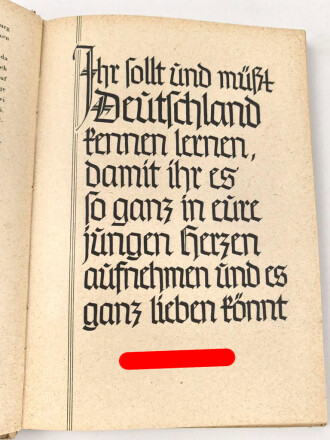 Ihr sollt und müßt
Deutschland
kennen lernen,
damit ihr es
so ganz in eure
jungen Herzen
aufnehmen und es
ganz lieben könnt